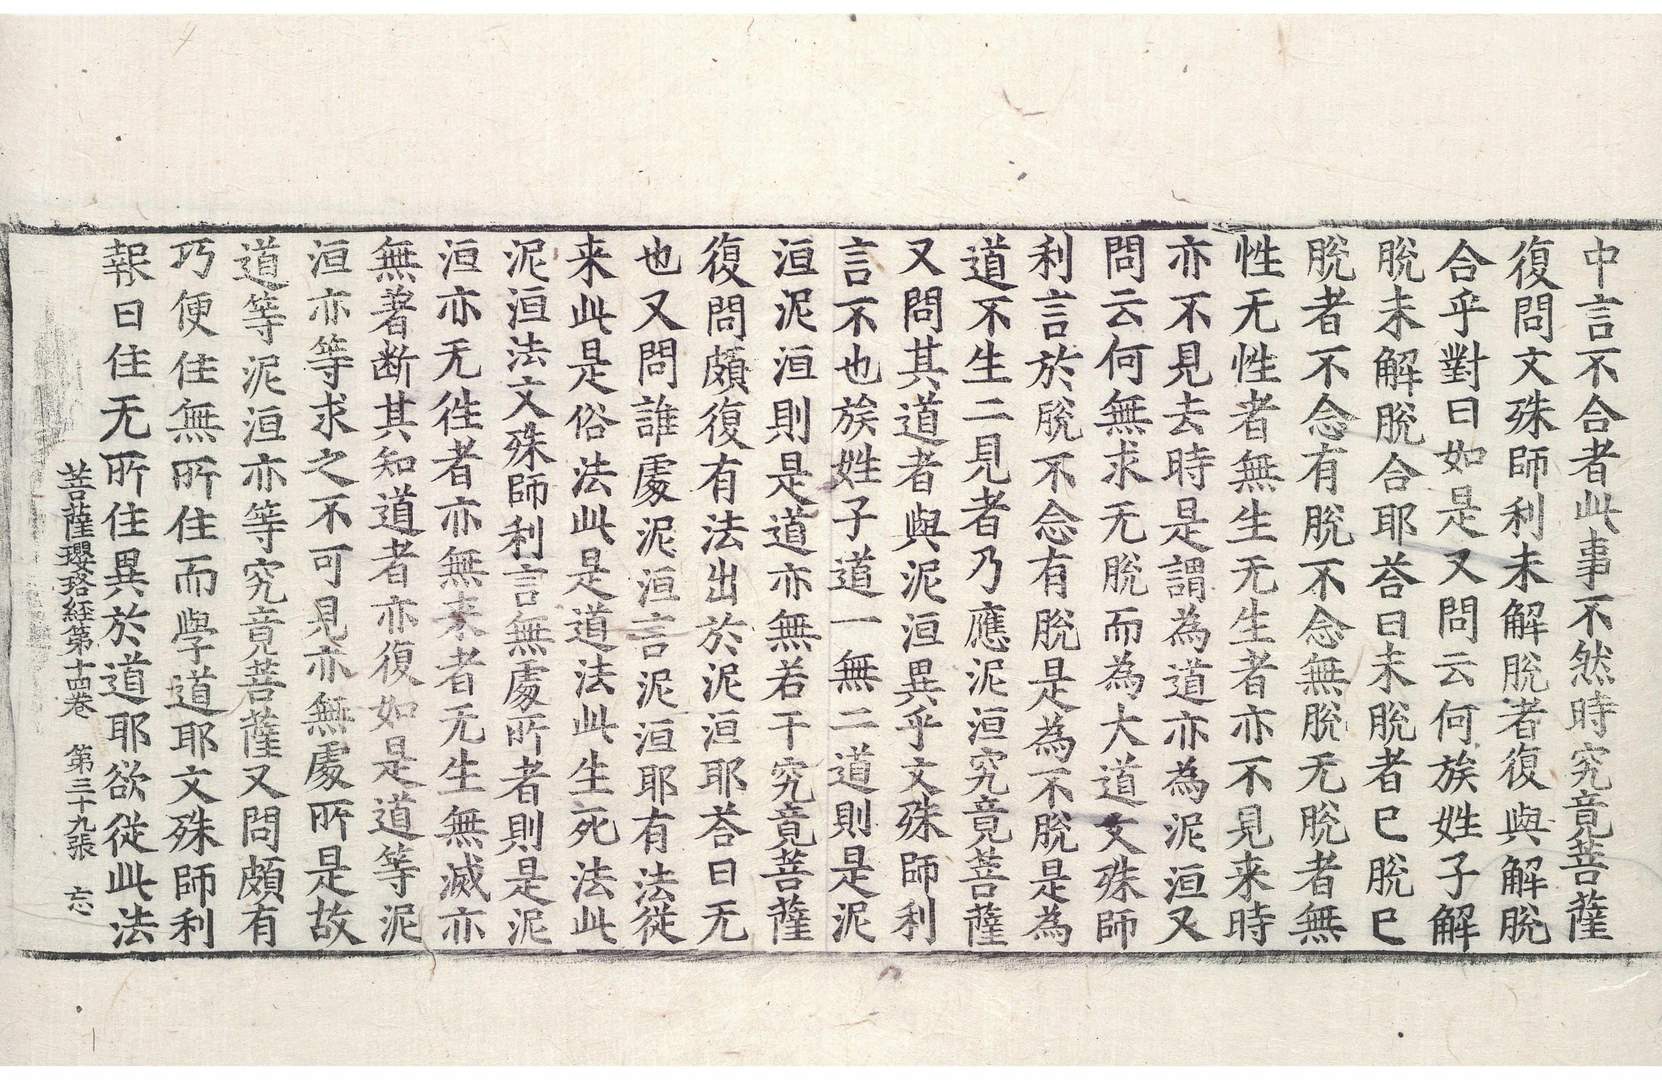 中言不合者此事不然時究竟菩薩
復問文殊師利未解脫者復與解脫
合乎對曰如是又問云何族姓子解
脫未解脫合耶荅曰未脫者已脫已
脫者不念有脫不念無脫无脫者無
性无性者無生无生者亦不見来時
亦不見去時是謂為道亦為泥洹又
問云何無求无脫而為大道文殊師
利言於脫不念有脫是為不脫是為
道不生二見者乃應泥洹究竟菩薩
又問其道者與泥洹異乎文殊師利
言不也族姓子道一無二道則是泥
洹泥洹則是道亦無若干究竟菩薩
復問頗復有法出於泥洹耶荅曰无
也又問誰處泥洹言泥洹耶有法從
来此是俗法此是道法此生死法此
泥洹法文殊師利言無處所者則是泥
洹亦无徃者亦無来者无生無滅亦
無著断其知道者亦復如是道等泥
洹亦等求之不可見亦無處所是故
道等泥洹亦等究竟菩薩又問頗有
巧便住無所住而學道耶文殊師利
報曰住无所住異於道耶欲從此法
菩薩瓔珞經第十四卷　第三十九張　忘